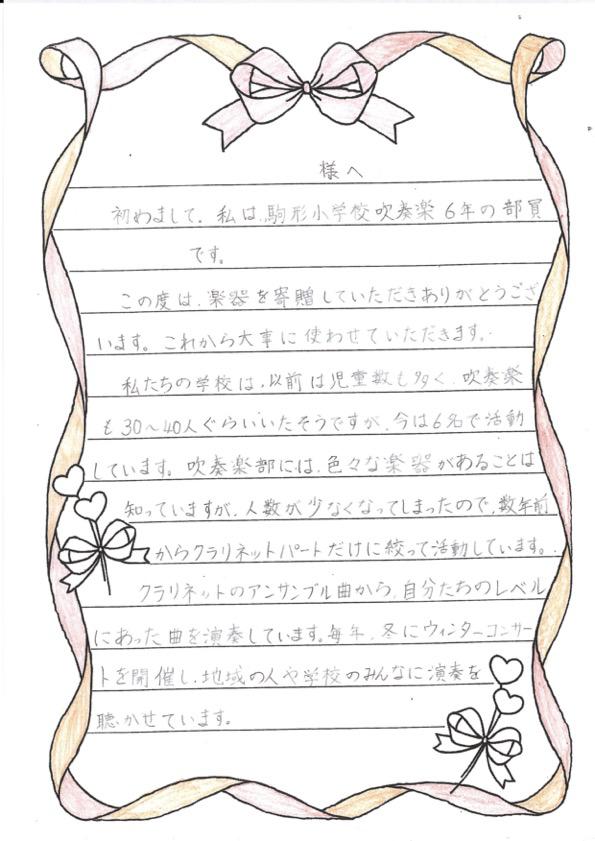 様へ
初めまして。私は、駒形小学校吹奏楽6年の部員
です。
この度は、楽器を寄贈していただきありがとうござ
います。これから大事に使わせていただきます。
私たちの学校は、以前は児童数も多く、吹奏楽
も30～40人ぐらいいたそうですが、今は6名で活動
しています。吹奏楽部には、色々な楽器があることは
知っていますが、人数が少なくなってしまったので、数年前
からクラリネットパートだけに絞って活動しています。
クラリネットのアンサンブル曲から、自分たちのレベル
にあった曲を演奏しています。毎年、冬にウィンターコンサー
トを開催し、地域の人や学校のみんなに演奏を
聴かせています。